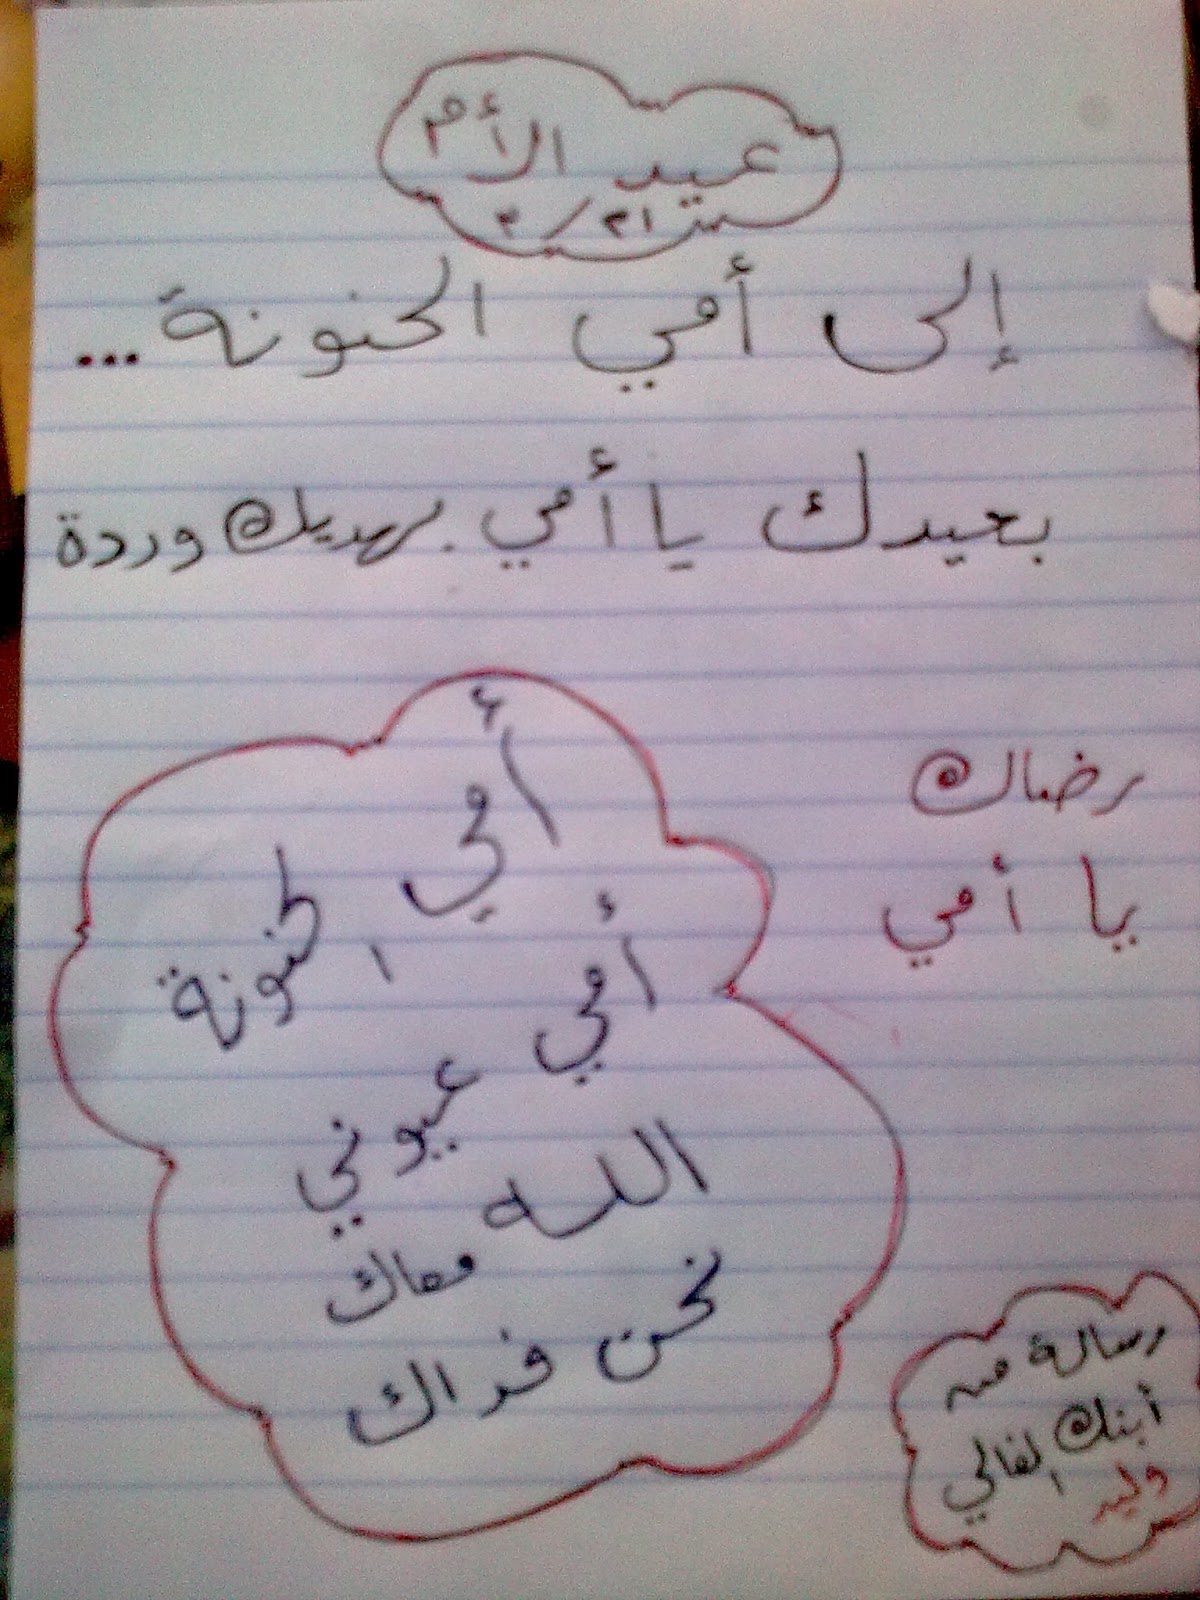 عيد الأم
٢١ / ٣
إلى أمي الحنونة...
بعيدك يا أمي بهديك وردة
رضاك
يا أمي
أمي
الحنونة
أمي
عيوني
الله
معاك
نحن فداك
رسالة من
أبنك الغالي
وليد